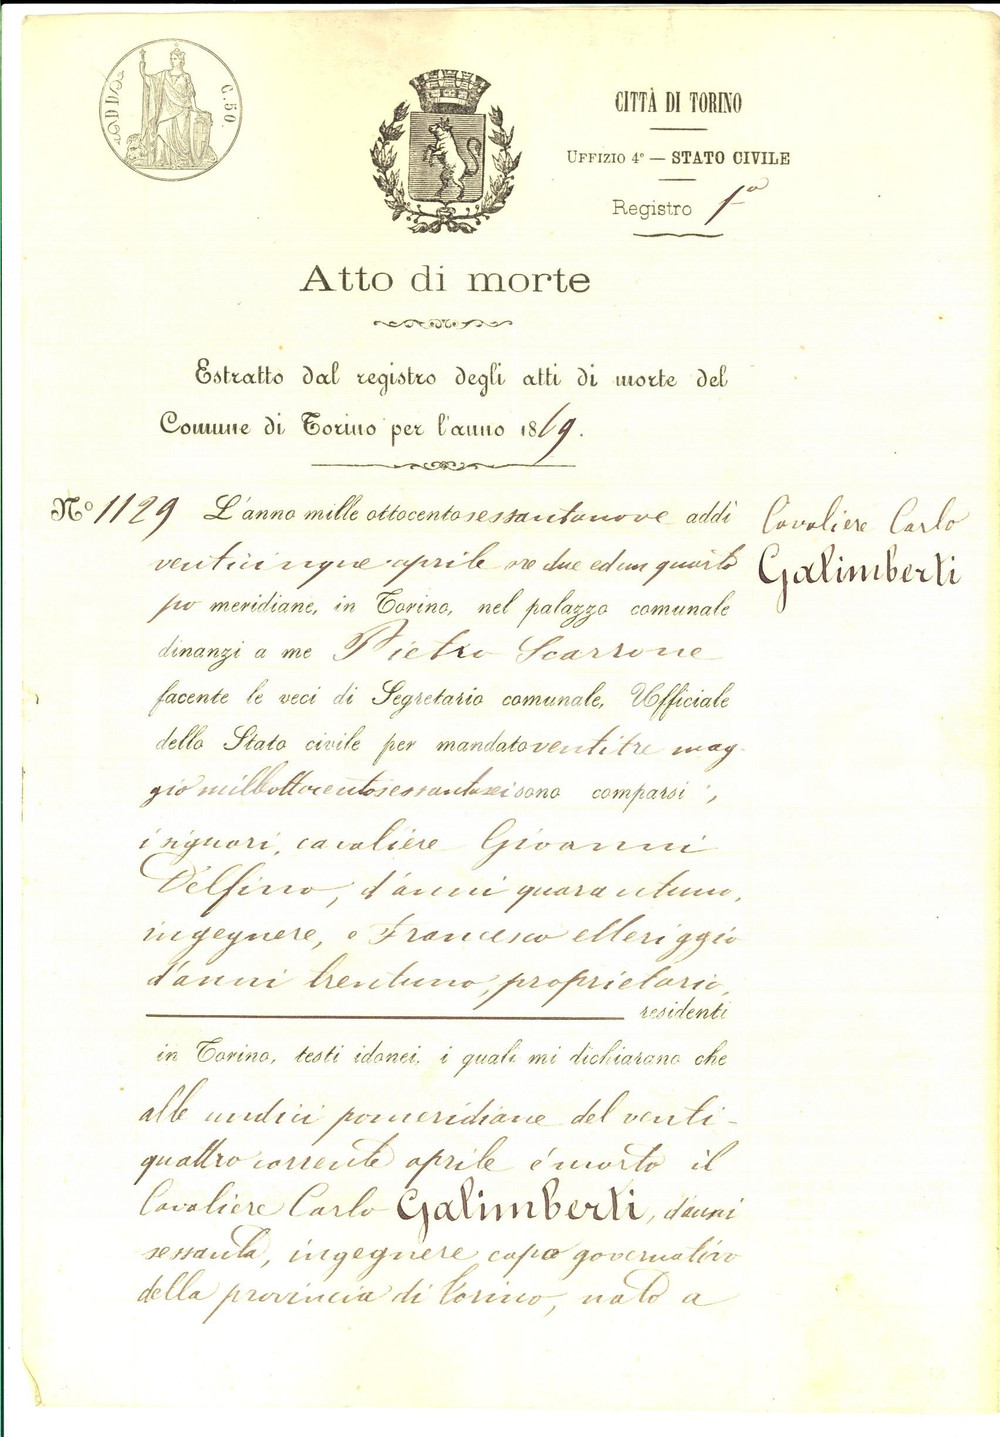 C. 50.
CITTÀ DI TORINO
UFFIZIO 4º — STATO CIVILE
Registro 1º
Atto di morte
Estratto dal registro degli atti di morte del
Comune di Torino per l'anno 1869.
Nº 1129 L'anno mille ottocentosessantanove addì
venticinque aprile ore due ed un quarto
po meridiane, in Torino, nel palazzo comunale
dinanzi a me Pietro Scarrone
facente le veci di Segretario comunale, Uffiziale
dello Stato civile per mandato ventitre mag-
gio milleottocentosessantasei sono comparsi,
i signori, cavaliere Giovanni
Delfino, d'anni quarantuno,
ingegnere, e Francesco Meriggio
d'anni trentuno, proprietario,
residenti
in Torino, testi idonei, i quali mi dichiarano che
alle undici pomeridiane del venti-
quattro corrente aprile è morto il
Cavaliere Carlo Galimberti, d'anni
sessanta, ingegnere capo governativo
della provincia di Torino, nato a
Cavaliere Carlo
Galimberti